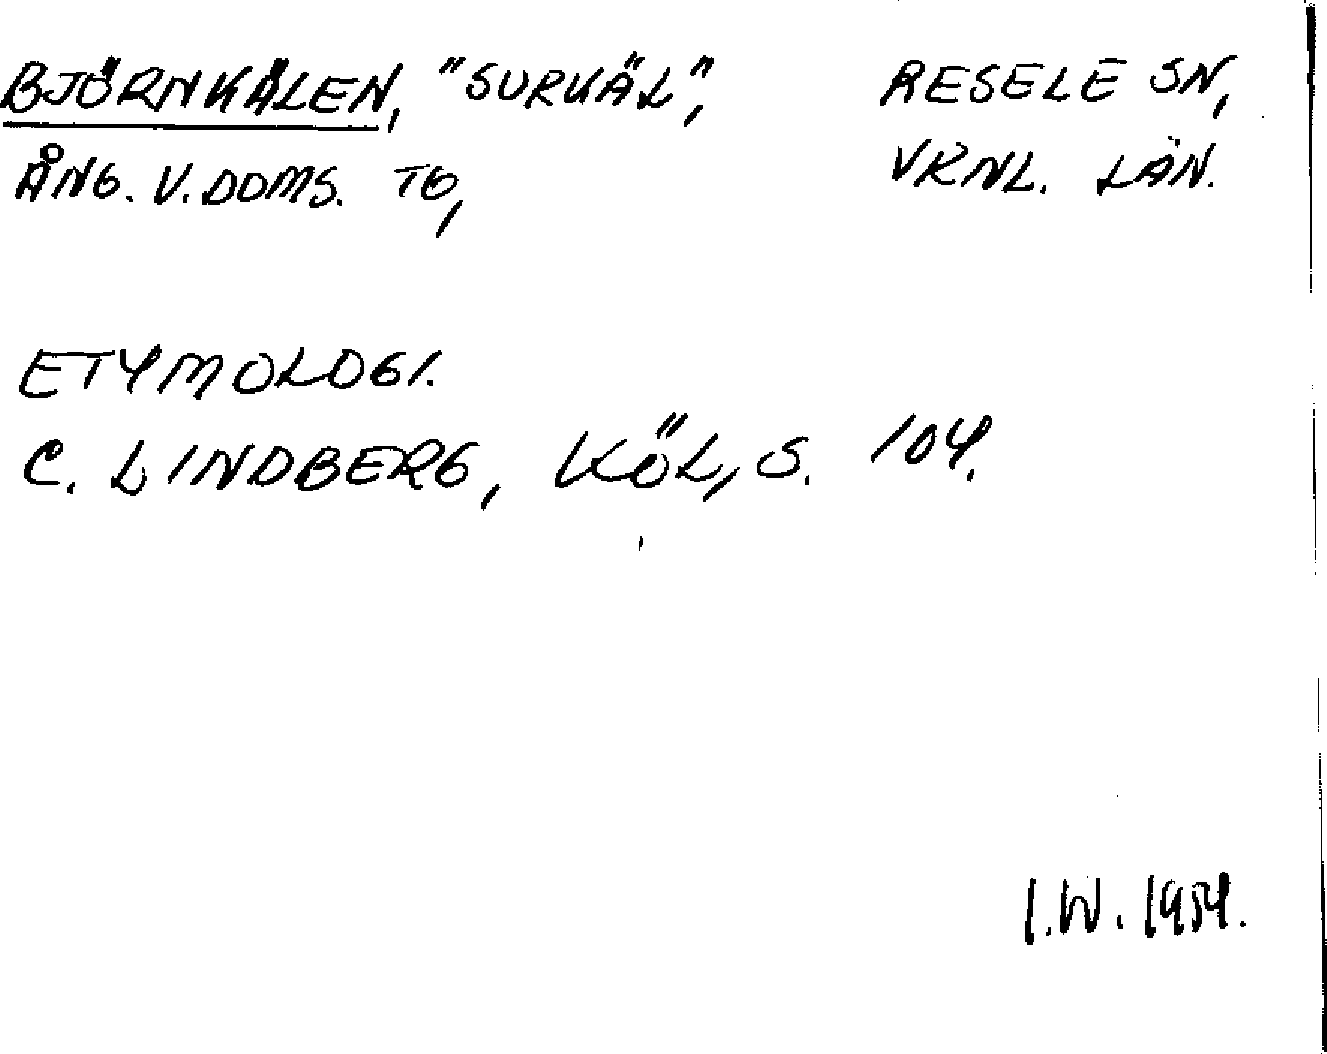 BJÖRNKÅLEN, "SURKÅL", RESELE SN,
ÅNG. V. DOMS. TG, VRNL. LÄN.
ETYMOLOGI.
C. LINDBERG, KÖL, S. 104.
I.W. 1954.